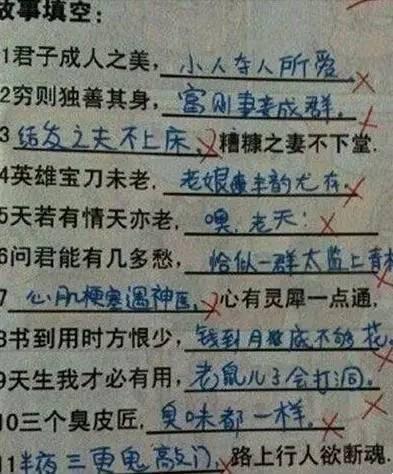 故事填空：
1君子成人之美，小人夺人所爱
2穷则独善其身，富则妻妾成群。
3 结发之夫不上床，糟糠之妻不下堂.
4英雄宝刀未老，老娘丰韵尤存。
5天若有情天亦老，噢，老天！
6问君能有几多愁，恰似一群太监上青
7 心肌梗塞遇神医，心有灵犀一点通，
8书到用时方恨少，钱到月底不够花。
9天生我才必有用，老鼠儿子会打洞。
10三个臭皮匠，臭味都一样。
11半夜三更鬼敲门，路上行人欲断魂.